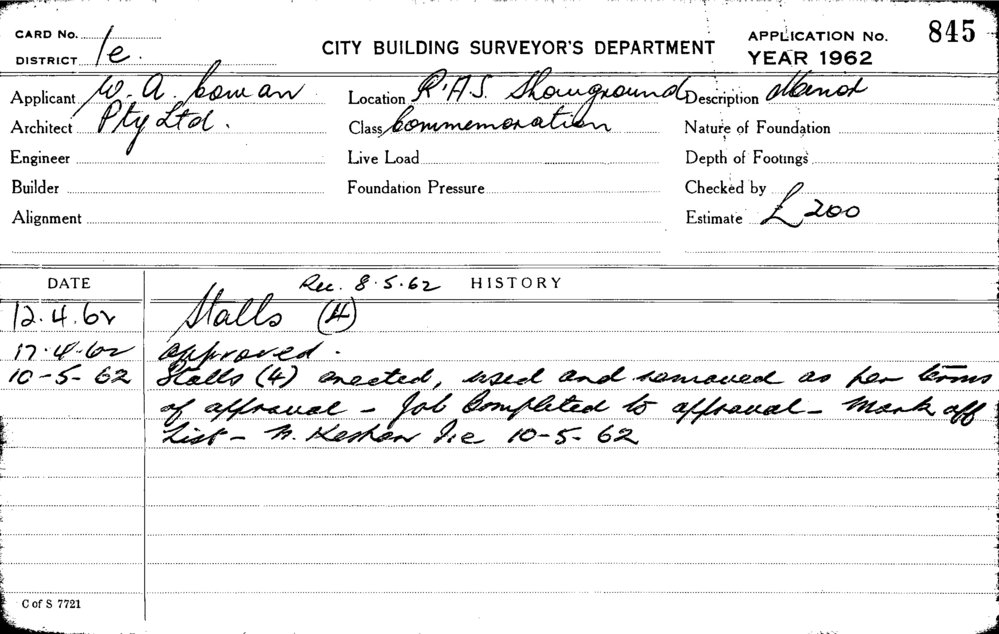 CARD No.
DISTRICT 1e.
CITY BUILDING SURVEYOR'S DEPARTMENT
APPLICATION No. 845
YEAR 1962
Applicant W. A. Cowan
Location R.A.S. Showground
Description Minor
Architect Pty Ltd.
Class Commemoration
Nature of Foundation
Engineer
Live Load
Depth of Footings
Builder
Foundation Pressure
Checked by
Alignment
Estimate £200
DATE
Rec. 8.5.62 HISTORY
12.4.62 Stalls (4)
17.4.62 approved.
10-5-62 Stalls (4) erected, used and removed as per terms
of approval - Job Completed to approval - Mark off
List - 10-5-62
C of S 7721